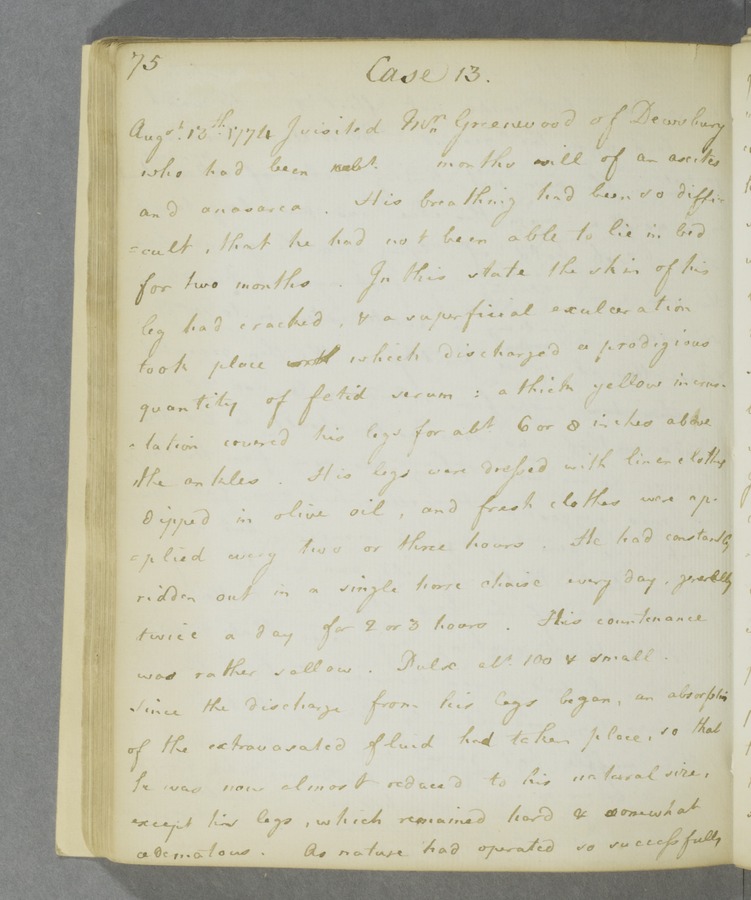 75
Case 13.
Augst. 13th. 1774 I visited Mr. Greenwood of Dewsbury
who had been months ill of an ascites
and anasarca. His breathing had been so diffi-
=cult, that he had not been able to lie in bed
for two months. In this state the skin of his
leg had cracked, & a superficial exulceration
took place which discharged a prodigious
quantity of fetid serum: a thick yellow incrus-
-tation covered his legs for abt 6 or 8 inches above
the ankles. His legs were dressed with linen clothes
dipped in olive oil, and fresh clothes were ap-
=plied every two or three hours. He had constantly
ridden out in a single horse chaise every day, generally
twice a day for 2 or 3 hours. His countenance
was rather sallow. Pulse abt. 100 & small.
Since the discharge from his legs began, an absorption
of the extravasated fluid had taken place, so that
he was now almost reduced to his natural size,
except his legs, which remained hard & somewhat
œdematous. As nature had operated so successfully